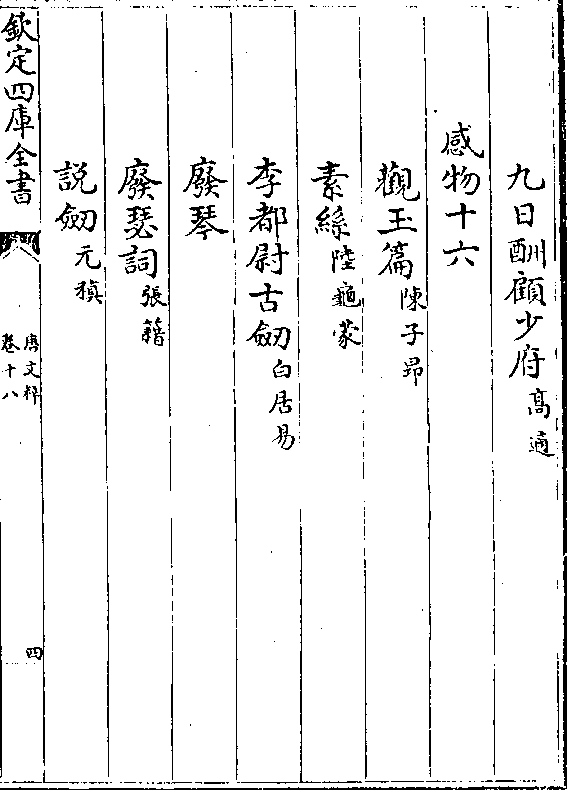 九日酬顧少府高適
感物十六
觀玉篇陳子昂
素絲陸龜蒙
李都尉古劒白居易
廢琴
廢瑟詞張籍
説劒元稹
欽定四庫全書
唐文粹
卷十八
四